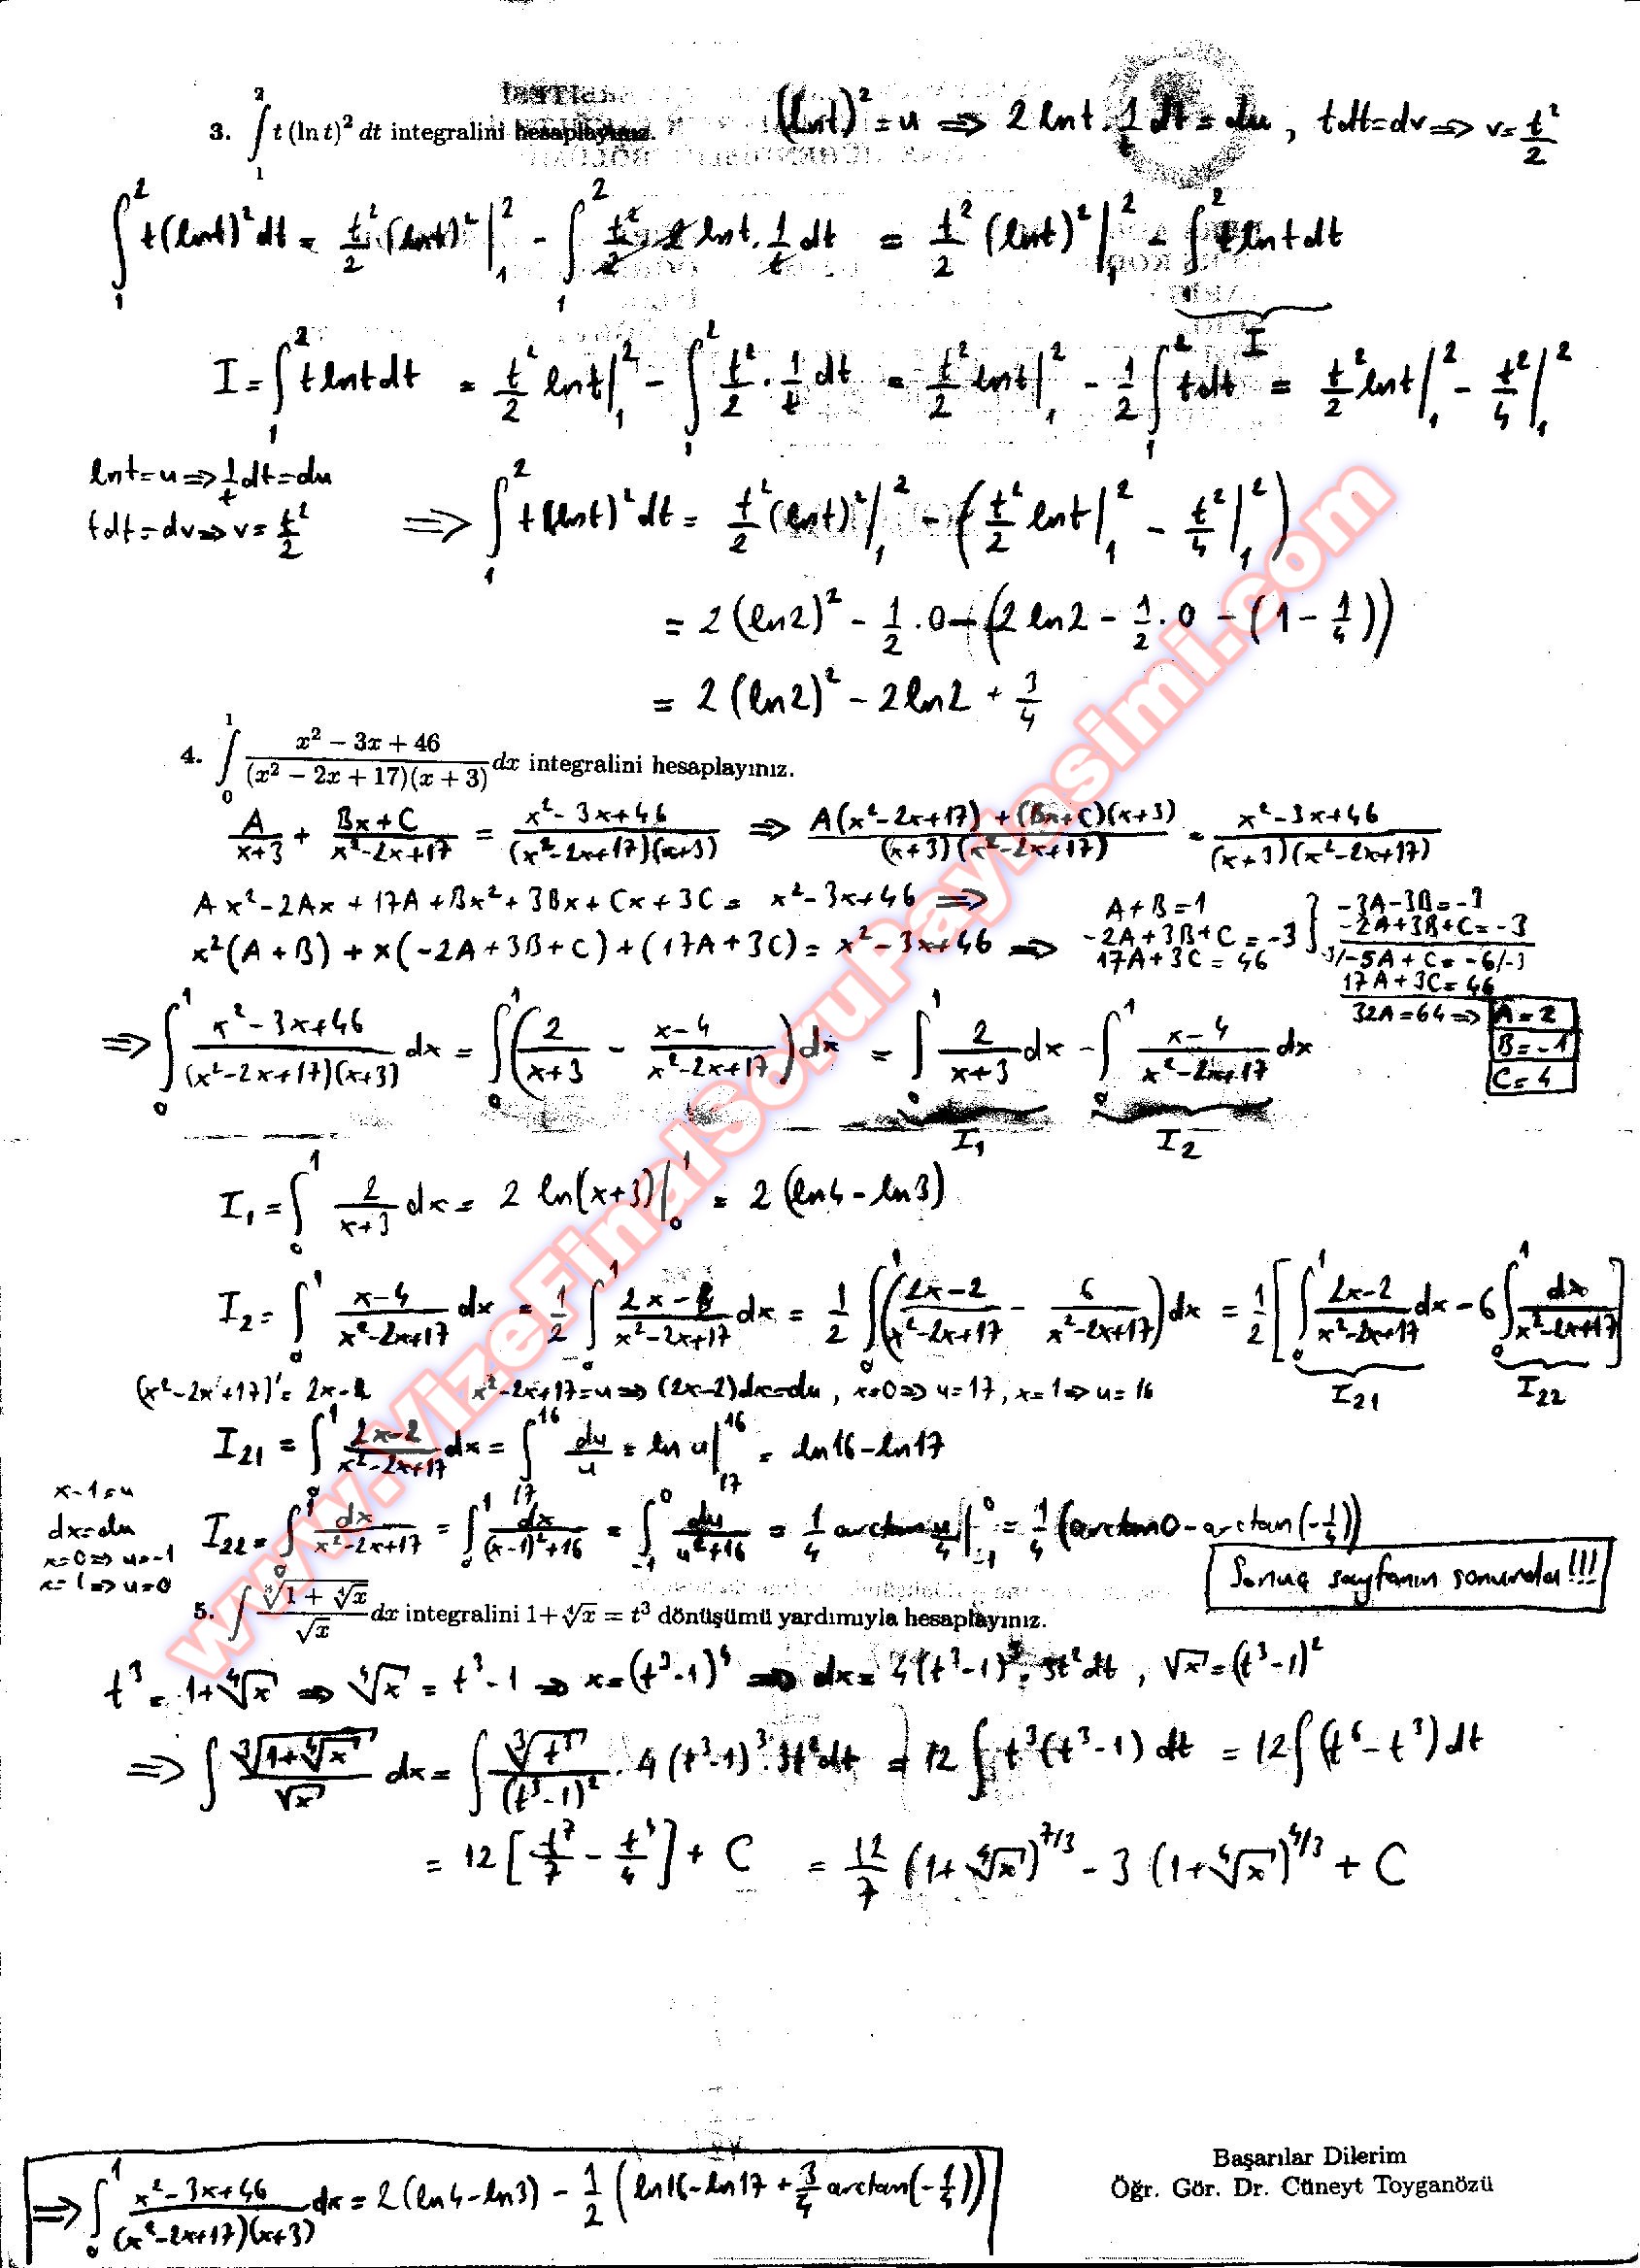 3. ∫₁² t (ln t)² dt integralini hesaplayınız. (lnt)² = u ⇒ 2 lnt · 1/t dt = du, tdt = dv ⇒ v = t²/2
∫₁² t(lnt)² dt = t²/2 (lnt)² |₁² - ∫₁² t²/2 · 2 lnt · 1/t dt = t²/2 (lnt)² |₁² - ∫₁² t lnt dt
I
I = ∫₁² t lnt dt = t²/2 lnt |₁² - ∫₁² t²/2 · 1/t dt = t²/2 lnt |₁² - 1/2 ∫₁² t dt = t²/2 lnt |₁² - t²/4 |₁²
lnt = u ⇒ 1/t dt = du
tdt = dv ⇒ v = t²/2
⇒ ∫₁² t(lnt)² dt = t²/2 (lnt)² |₁² - (t²/2 lnt |₁² - t²/4 |₁²)
= 2(ln2)² - 1/2 · 0 - (2 ln2 - 1/2 · 0 - (1 - 1/4))
= 2(ln2)² - 2 ln2 + 3/4
4. ∫₀¹ (x² - 3x + 46)/((x² - 2x + 17)(x + 3)) dx integralini hesaplayınız.
A/(x+3) + (Bx+C)/(x²-2x+17) = (x²-3x+46)/((x²-2x+17)(x+3)) ⇒ (A(x²-2x+17) + (Bx+C)(x+3))/((x+3)(x²-2x+17)) = (x²-3x+46)/((x+3)(x²-2x+17))
Ax² - 2Ax + 17A + Bx² + 3Bx + Cx + 3C = x² - 3x + 46 ⇒
x²(A+B) + x(-2A+3B+C) + (17A+3C) = x² - 3x + 46 ⇒
A+B=1
-2A+3B+C=-3
17A+3C=46
-3A-3B=-3
-2A+3B+C=-3
-3/-5A+C=-6/-3
17A+3C=46
32A=64 ⇒ A=2
B=-1
C=4
⇒ ∫₀¹ (x²-3x+46)/((x²-2x+17)(x+3)) dx = ∫₀¹ (2/(x+3) - (x-4)/(x²-2x+17)) dx = ∫₀¹ 2/(x+3) dx - ∫₀¹ (x-4)/(x²-2x+17) dx
I₁ I₂
I₁ = ∫₀¹ 2/(x+3) dx = 2 ln(x+3) |₀¹ = 2 (ln4 - ln3)
I₂ = ∫₀¹ (x-4)/(x²-2x+17) dx = 1/2 ∫₀¹ (2x-8)/(x²-2x+17) dx = 1/2 ∫₀¹ ((2x-2)/(x²-2x+17) - 6/(x²-2x+17)) dx = 1/2 [∫₀¹ (2x-2)/(x²-2x+17) dx - 6 ∫₀¹ dx/(x²-2x+17)]
I₂₁ I₂₂
(x²-2x+17)' = 2x-2 x²-2x+17 = u ⇒ (2x-2)dx = du, x=0 ⇒ u=17, x=1 ⇒ u=16
I₂₁ = ∫₀¹ (2x-2)/(x²-2x+17) dx = ∫₁₇¹⁶ du/u = ln u |₁₇¹⁶ = ln16 - ln17
x-1=u
dx=du
x=0 ⇒ u=-1
x=1 ⇒ u=0
I₂₂ = ∫₀¹ dx/(x²-2x+17) = ∫₀¹ dx/((x-1)²+16) = ∫₋₁⁰ du/(u²+16) = 1/4 arctan u/4 |₋₁⁰ = 1/4 (arctan0 - arctan(-1/4))
Sonuç sayfanın sonunda!!!
5. ∫ ∛(1 + ∜x)/√x dx integralini 1 + ∜x = t³ dönüşümü yardımıyla hesaplayınız.
t³ = 1+∜x ⇒ ∜x = t³-1 ⇒ x = (t³-1)⁴ ⇒ dx = 4(t³-1)³ · 3t² dt, √x = (t³-1)²
⇒ ∫ ∛(1+∜x)/√x dx = ∫ ∛(t³)/(t³-1)² · 4(t³-1)³ · 3t² dt = 12 ∫ t³(t³-1) dt = 12 ∫ (t⁶ - t³) dt
= 12 [t⁷/7 - t⁴/4] + C = 12/7 (1+∜x)^7/3 - 3 (1+∜x)^4/3 + C
⇒ ∫₀¹ (x²-3x+46)/((x²-2x+17)(x+3)) dx = 2(ln4-ln3) - 1/2 (ln16-ln17 + 3/4 arctan(-1/4))
Başarılar Dilerim
Öğr. Gör. Dr. Cüneyt Toyganözü
www.VizeFinalSoruPaylasimi.com